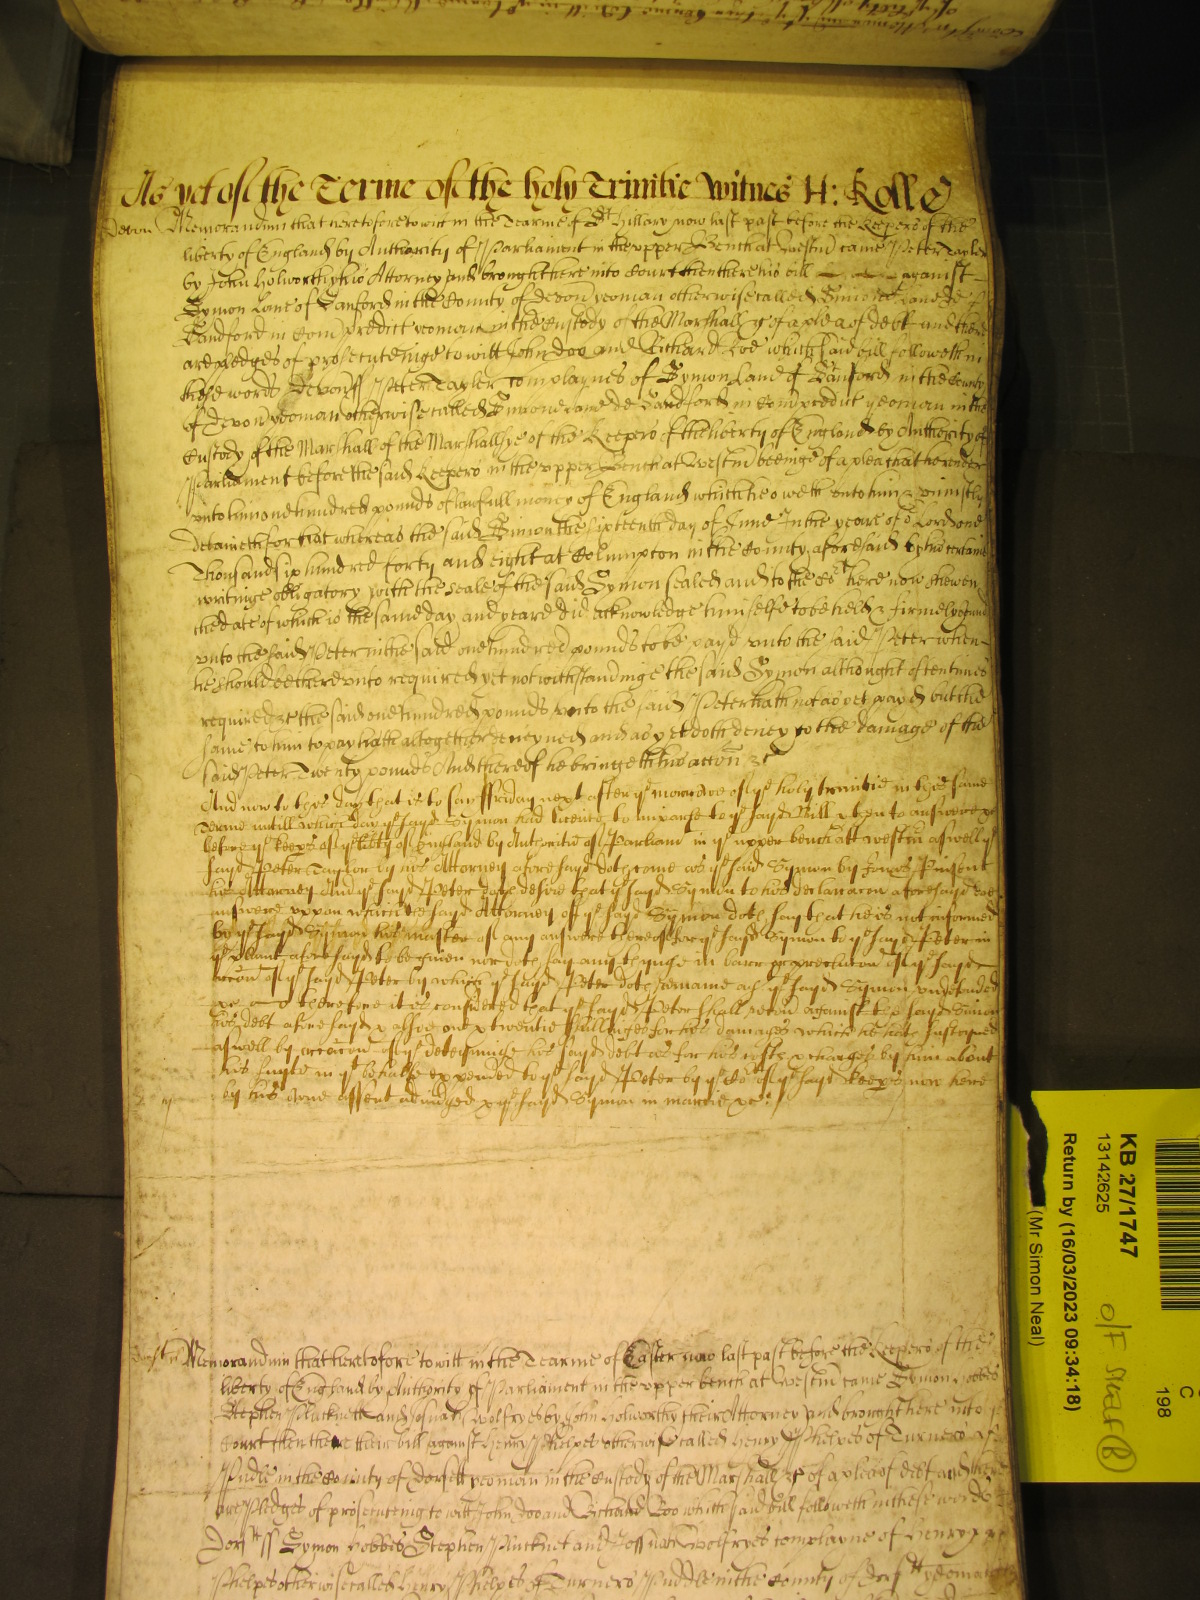 As yet of the Terme of the holy Trinitie Witnes H: Rolle
Devon Memorandum that heretofore to witt in the Tearme of St Hillary now last past before the Keepers of the
liberty of England by Authority of Parliament in the upper Bench at Westm came Peter Tayler
by John Holworthy his Attorney and brought here into Court then there his bill against
Symon Lane of Sanford in the County of Devon yeoman otherwise called Simone Lane de
Sandford in Com predict yeoman in the Custody of the Marshall &c of a plea of debt and there
are pledges of prosecuteinge to witt John Doo and Richard Roe which said bill followeth in
these words Devon ss Peter Tayler complaynes of Symon Lane of Sanford in the County
of Devon yeoman otherwise called Simone Lane de Sandford in Com predict yeoman in the
Custody of the Marshall of the Marshallsye of the Keepers of the liberty of England by Authority of
Parliament before the said Keepers in the upper Bench at Westm beeinge of a plea that he render
unto him one hundred pounds of lawfull money of England which he oweth unto him & uniustly
detaineth for that whereas the said Simon the sixteenth day of June In the yeare of or Lord one
Thousand six hundred forty and eight at Columpton in the County aforesaid by his certaine
writinge obligatory with the seale of the said Symon sealed and to the Cort here now shewen
the date of which is the same day and yeare did acknowledge himselfe to be held & firmely bound
unto the said Peter in the said one hundred pounds to be payd unto the said Peter when
he should be thereunto required yet notwithstandinge the said Symon althought oftentimes
required &c the said one hundred pounds unto the said Peter hath not as yet payd but the
same to him to pay hath altogether denyed and as yet doth deney to the damage of the
said Peter Twenty pounds And thereof he bringeth his accon &c
And now to this day that is to say ffriday next after ye morrowe of ye holy trinitie in this same
Terme untill which day ye sayd Symon had licence to imparle to ye sayd Bill & then to answere &c
before ye keeps of ye libty of England by Authoritie of Parliam in ye upper bench att westm aswell ye
sayd Peter Taylor by his Attorney aforesayd doth come as ye said Symon by James Pinsent
his Attorney And ye sayd Peter doth desire that ye sayd Symon to his declaracon aforesayd doe
answere uppon which the sayd Attorney of ye sayd Symon doth say that he is not informed
by ye sayd Symon his master of any answere thereof for ye sayd Symon to ye sayd Peter in
ye plaint aforesayd to be given nor doth say any thinge in barr or preclucon of ye sayd
accon of ye sayd Peter by which ye sayd Peter doth remaine agt ye sayd Symon undefended
&c therefore it is considered that ye sayd Peter shall recov against the sayd Simon
his debt aforesayd & alsoe one & twentie shillinges for his damages which he hath susteyned
aswell by occacon of ye deteyninge his sayd debt as for his costs & charges by him about
his suyte in yt behalfe expended to ye sayd Peter by ye Cort of ye sayd keeps now here
by his owne assent adiudged & ye sayd Symon in mercie &c
Dorst Memorandum that heretofore to witt in the Tearme of Easter now last past before the Keepers of the
liberty of England by Authority of Parliament in the upper bench at Westm came Symon Hobbes
Stephen Plucknett and Josuah Wolfryes by John Holworthy their Attorney and brought here into
Court then there their bill against Henry Phelpes otherwise called Henry Phelpes of Turners
Pudle in the County of Dorsett yeoman in the Custody of the Marshall &c of a plea of debt and there
are Pledges of prosecuteing to witt John Doo and Richard Roo which said bill followeth in these words
Dorstt ss Symon Hobbes Stephen Plucknet and Jossuah Wolfryes complayne of Henry
Phelpes otherwise called Henry Phelpes of Turners Puddle in the County of Dorstt yeoman
KB 27/1747
13142625
Return by (16/03/2023 09:34:18)
(Mr Simon Neal)
C
198